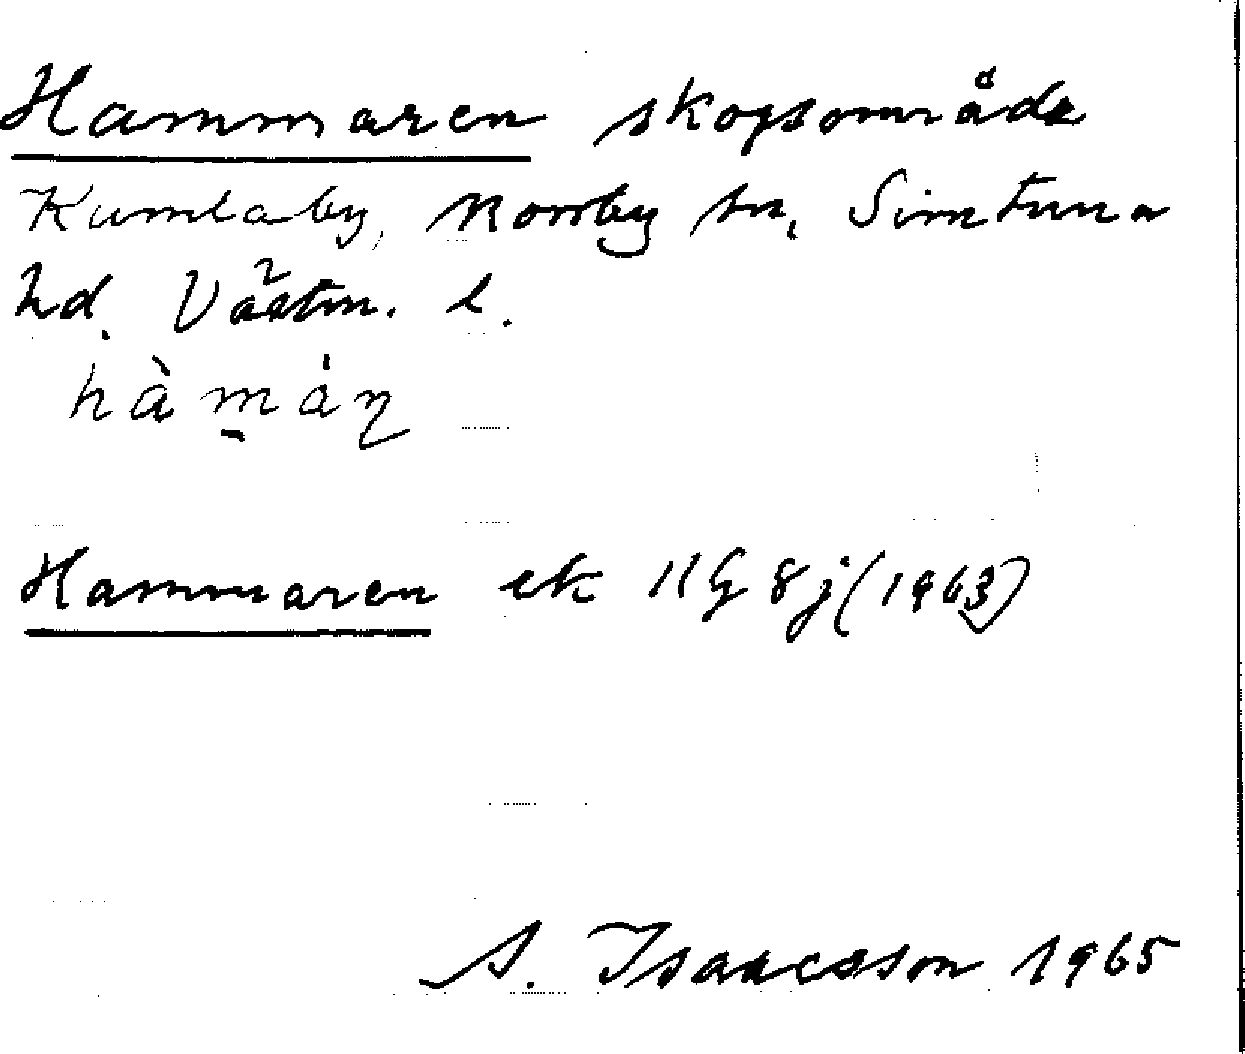 Hammaren skogsområde
Kumlaby, Norrby sn, Simtuna
hd. Västm. l.
hàmán
Hammaren ek 11G 8j (1963)
S. Isaacsson 1965